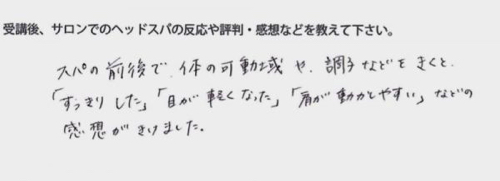 受講後、サロンでのヘッドスパの反応や評判・感想などを教えて下さい。
スパの前後で、体の可動域や、調子などをきくと、
「すっきりした」「目が軽くなった」「肩が動かしやすい」などの
感想がきけました。